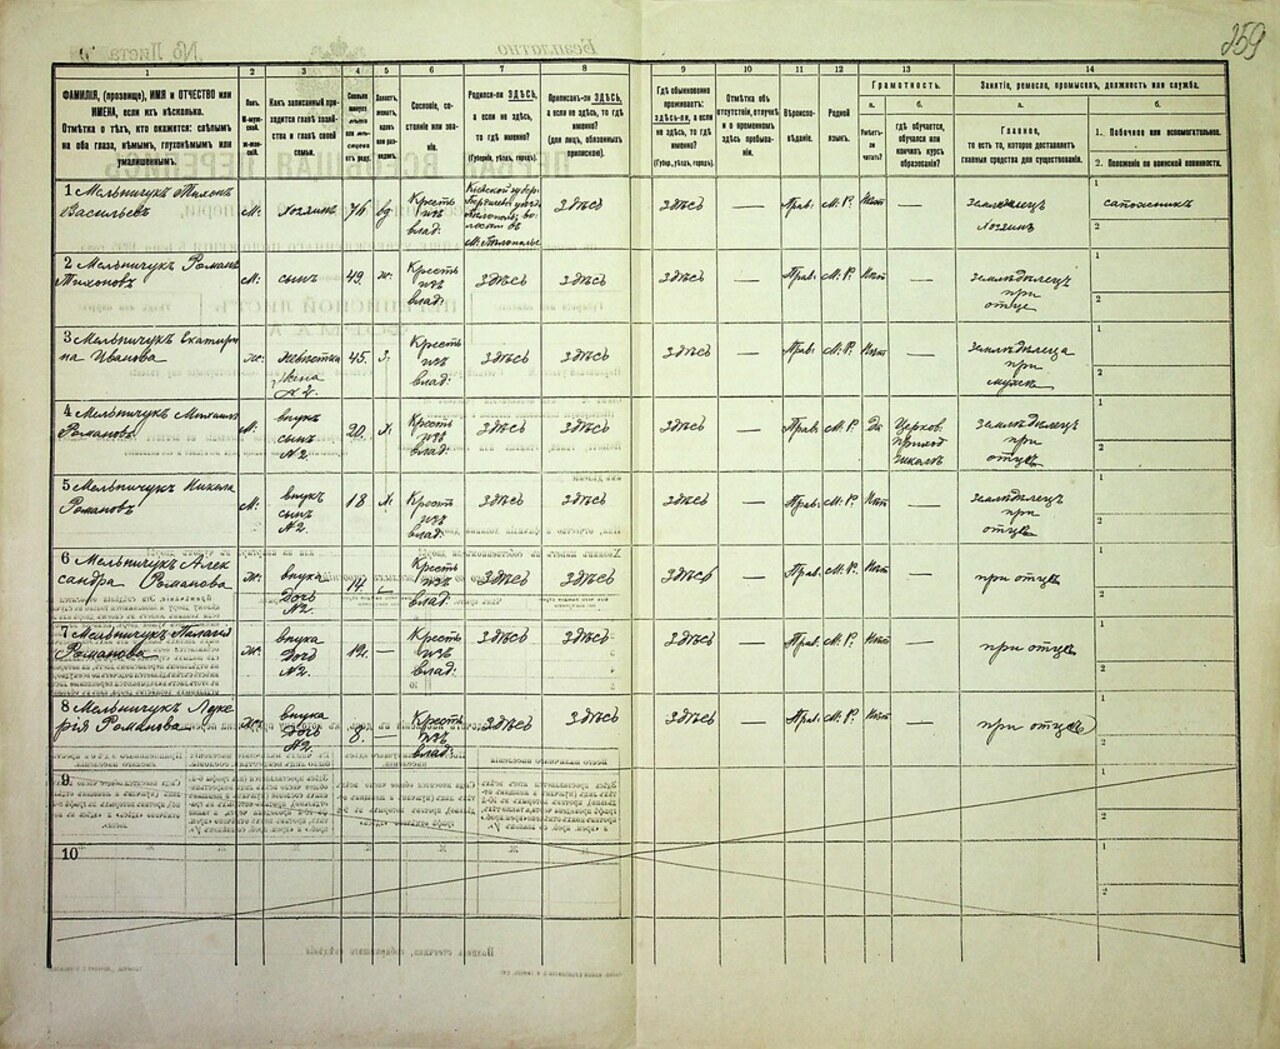 359
1 2 3 4 5 6 7 8 9 10 11 12 13 14
ФАМИЛІЯ, (прозвище), ИМЯ и ОТЧЕСТВО или
ИМЕНА, если ихъ нѣсколько.
Отмѣтка о тѣхъ, кто окажется: слѣпымъ
на оба глаза, нѣмымъ, глухонѣмымъ или
умалишеннымъ.
Полъ.
М-мужской.
Ж-женскій.
Какъ записанный приходится
главѣ хозяйства
и главѣ своей
семьи.
Сословіе, состояніе
или званіе.
Родился-ли ЗДѢСЬ,
а если не здѣсь,
то гдѣ именно?
(Губернія, уѣздъ, городъ).
Приписанъ-ли ЗДѢСЬ,
а если не здѣсь, то гдѣ
именно?
(для лицъ, обязанныхъ
припискою).
Гдѣ обыкновенно
проживаетъ:
здѣсь-ли, а если
не здѣсь, то гдѣ
именно?
(Губер., уѣздъ, городъ).
Отмѣтка объ
отсутствіи, отлучкѣ
и о временномъ
здѣсь пребываніи.
Вѣроисповѣданіе.
Родной
языкъ.
Грамотность.
а. Умѣетъ-ли
читать?
б. гдѣ обучается,
обучался или
кончилъ курсъ
образованія?
Занятіе, ремесло, промыселъ, должность или служба.
а. Главное,
то есть то, которое доставляетъ
главныя средства для существованія.
б.
1. Побочное или вспомогательное.
2. Положеніе по воинской повинности.
1 Мельничукъ Тихонъ Васильевъ М. Хозяинъ 76 вд Кресть изъ влад. Кіевской губер. Бердичев. уѣзд. Бѣлопол. волости въ М. Бѣлопольѣ здѣсь здѣсь Прав. М. Р. Нѣт — земледѣлецъ хозяинъ 1 сапожникъ 2
2 Мельничукъ Романъ Тихоновъ М. сынъ 49. ж. Кресть изъ влад. здѣсь здѣсь здѣсь — Прав. М. Р. Нѣт — земледѣлецъ при отце 1 2
3 Мельничукъ Екатирина Иванова ж. невѣстка жена №2. 45. З. Кресть изъ влад: здѣсь здѣсь здѣсь — Прав. М. Р. Нѣт — земледѣлеца при мужѣ 1 2
4 Мельничукъ Михаилъ Романовъ М. внукъ сынъ №2. 20. Х. Кресть изъ влад: здѣсь здѣсь здѣсь — Прав. М. Р. Да Церков. приход школѣ земледѣлецъ при отцѣ 1 2
5 Мельничукъ Никола Романовъ М. внукъ сынъ №2. 18 Х. Кресть изъ влад: здѣсь здѣсь здѣсь — Прав. М. Р. Нѣт — земледѣлецъ при отцѣ 1 2
6 Мельничукъ Александра Романова ж. внука Дочь №2. 14. — Кресть изъ влад: здѣсь здѣсь здѣсь — Прав. М. Р. Нѣт — при отцѣ 1 2
7 Мельничукъ Палагія Романова ж. внука Дочь №2. 12. — Кресть изъ влад: здѣсь здѣсь здѣсь — Прав. М. Р. Нѣт — при отцѣ 1 2
8 Мельничукъ Лукерія Романова ж. внука Дочь №2. 8. — Кресть изъ влад: здѣсь здѣсь здѣсь — Прав. М. Р. Нѣт — при отцѣ 1 2
9 1 2
10 1 2